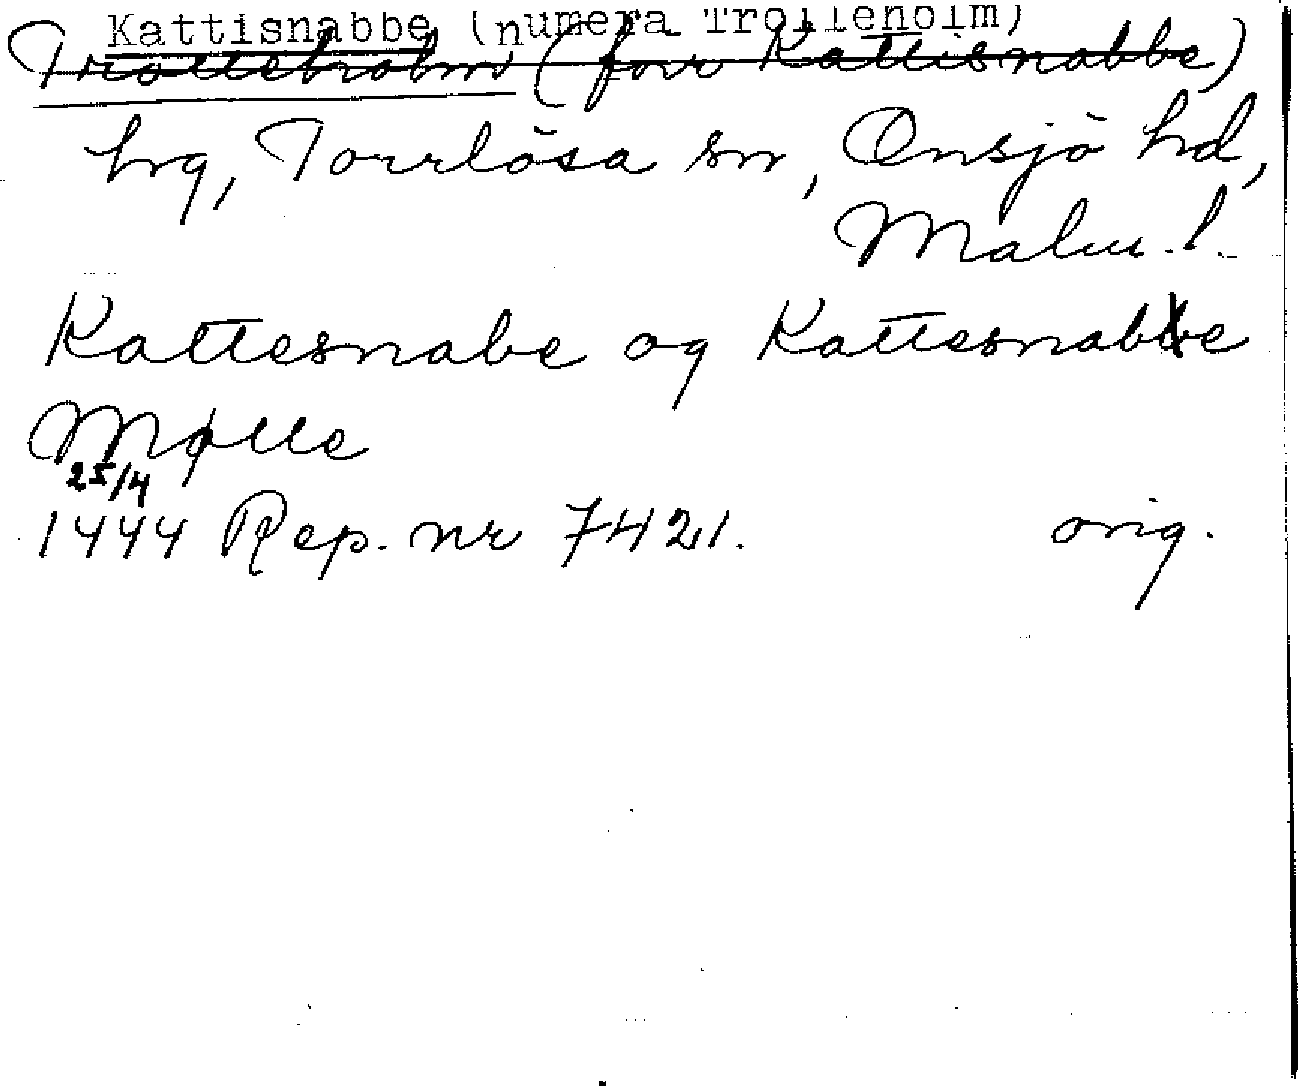 Kattisnabbe (numera Trolleholm)
Trolleholm (förr Kattisnabbe)
hrg, Torrlösa sn, Onsjö hd,
Malm. l.
Kattesnabe og Kattesnabe
Mølle
25/4
1444 Rep. nr 7421. orig.